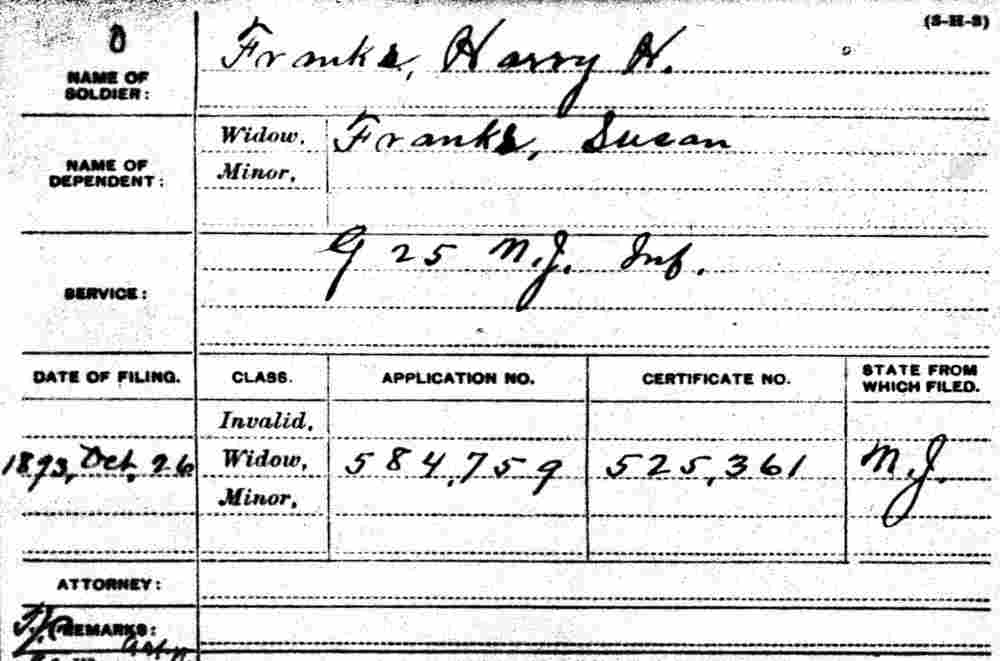 (3-H-3)
0
NAME OF SOLDIER: Franks, Harry H.
NAME OF DEPENDENT: Widow, Franks, Susan
Minor,
SERVICE: G 25 N.J. Inf.
DATE OF FILING. CLASS. APPLICATION NO. CERTIFICATE NO. STATE FROM WHICH FILED.
Invalid,
1893, Oct. 26 Widow, 584,759 525,361 N.J.
Minor,
ATTORNEY:
REMARKS: